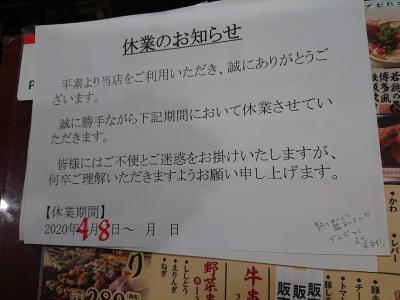 休業のお知らせ
平素より当店をご利用いただき、誠にありがとうご
ざいます。
誠に勝手ながら下記期間において休業させてい
ただきます。
皆様にはご不便とご迷惑をお掛けいたしますが、
何卒ご理解いただきますようお願い申し上げます。
【休業期間】
2020年4月8日～　月　日
博多風
かわ
レバー
ねぎ
えりんぎ
ししとう
野菜
牛串
販
販
販
280